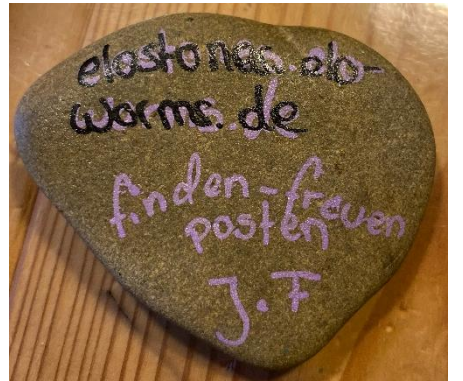 elostones.elo-
worms.de
finden-freuen
posten
J.F